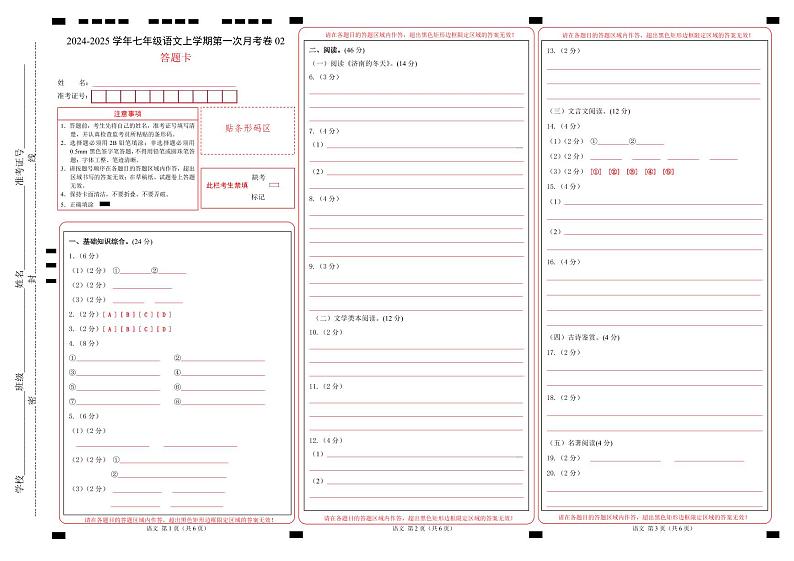 学校 班级 姓名 准考证号
密 封 线
2024-2025 学年七年级语文上学期第一次月考卷 02
答题卡
姓 名:
准考证号:
注意事项
1.答题前,考生先将自己的姓名,准考证号填写清
楚,并认真检查监考员所粘贴的条形码。
2.选择题必须用2B铅笔填涂;非选择题必须用
0.5mm 黑色签字笔答题,不得用铅笔或圆珠笔答
题;字体工整、笔迹清晰。
3.请按题号顺序在各题目的答题区域内作答,超出
区域书写的答案无效;在草稿纸、试题卷上答题
无效。
4.保持卡面清洁,不要折叠、不要弄破。
5.正确填涂
贴条形码区
此栏考生禁填
缺考
标记
一、基础知识综合。(24 分)
1.(6 分)
(1)(2 分) ①________②________
(2)(2 分) ________
(3)(2 分) ________ ________
2.(2 分)[ A ] [ B ] [ C ] [ D ]
3.(2 分)[ A ] [ B ] [ C ] [ D ]
4.(8 分)
①________ ②________
③________ ④________
⑤________ ⑥________
⑦________ ⑧________
5.(6 分)
(1)(2 分)
(2)(2 分) ①________
②________
(3)(2 分) ________ ________
请在各题目的答题区域内作答,超出黑色矩形边框限定区域的答案无效!
语文 第 1 页(共 6 页)
请在各题目的答题区域内作答,超出黑色矩形边框限定区域的答案无效!
二、阅读。(46 分)
(一)阅读《济南的冬天》。(14 分)
6.(3 分)
7.(4 分)
(1)________
(2)________
8.(4 分)
9.(3 分)
(二)文学类本阅读。(12 分)
10.(2 分)
11.(2 分)
12.(4 分)
(1)________
(2)________
请在各题目的答题区域内作答,超出黑色矩形边框限定区域的答案无效!
语文 第 2 页(共 6 页)
请在各题目的答题区域内作答,超出黑色矩形边框限定区域的答案无效!
13.(2 分)
(三)文言文阅读。(12 分)
14.(4 分)
(1)(2 分) ①________②________
(2)(2 分) ________ ________ ________ ________
(3)(2 分) [①] [②] [③] [④] [⑤]
15.(4 分)
(1)________
(2)________
16.(4 分)
(四)古诗鉴赏。(4 分)
17.(2 分)
18.(2 分)
(五)名著阅读(4 分)
19.(2 分) ________ ________
20.(2 分)
请在各题目的答题区域内作答,超出黑色矩形边框限定区域的答案无效!
语文 第 3 页(共 6 页)